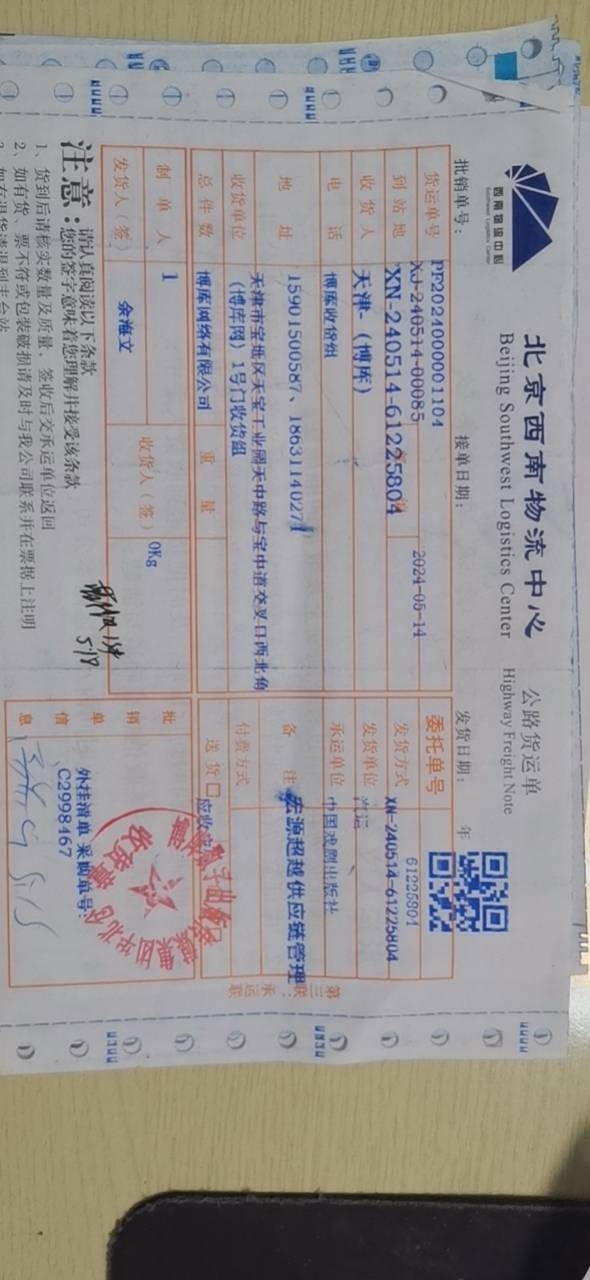 西南物流中心
Southwest Logistics Center
北京西南物流中心
Beijing Southwest Logistics Center
公路货运单
Highway Freight Note
批销单号:
接单日期:
发货日期:
年
PF2024000001104
2024-05-14
货运单号
XJ-240514-00085
委托单号
61225804
到站地
XN-240514-61225804
发货方式
XN-240514-61225804
收货人
天津-(博库)
发货单位
汽运
电话
博库收货组
承运单位
中国戏剧出版社
地址
15901500587、18631140271
备注
宏源超越供应链管理
收货单位
天津市宝坻区天宝工业园天中路与宝中道交叉口西北角
(博库网)1号门收货组
付费方式
总件数
博库网络有限公司
重量
送货口
应收
制单人
1
收货人(签)
0Kg
发货人(签)
余海文
批销单信息
外挂清单 采购单号:
C2998467
第三联:承运联
注意:
请认真阅读以下条款
您的签字意味着您理解并接受该条款
1、货到后请核实数量及质量,签收后交承运单位返回
2、如有货、票不符或包装破损请及时与我公司联系并在票据上注明
5/8